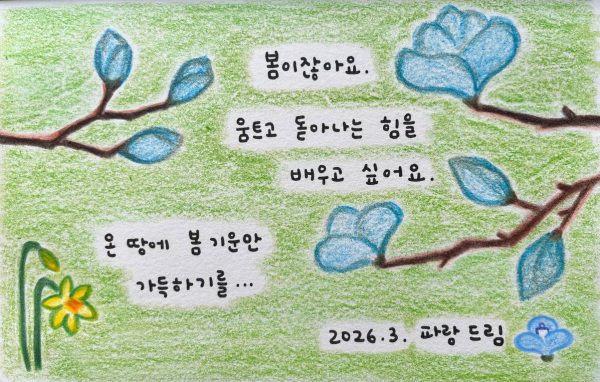 봄이잖아요.
움트고 돋아나는 힘을
배우고 싶어요.
온 땅에 봄 기운만
가득하기를...
2026.3. 파랑 드림